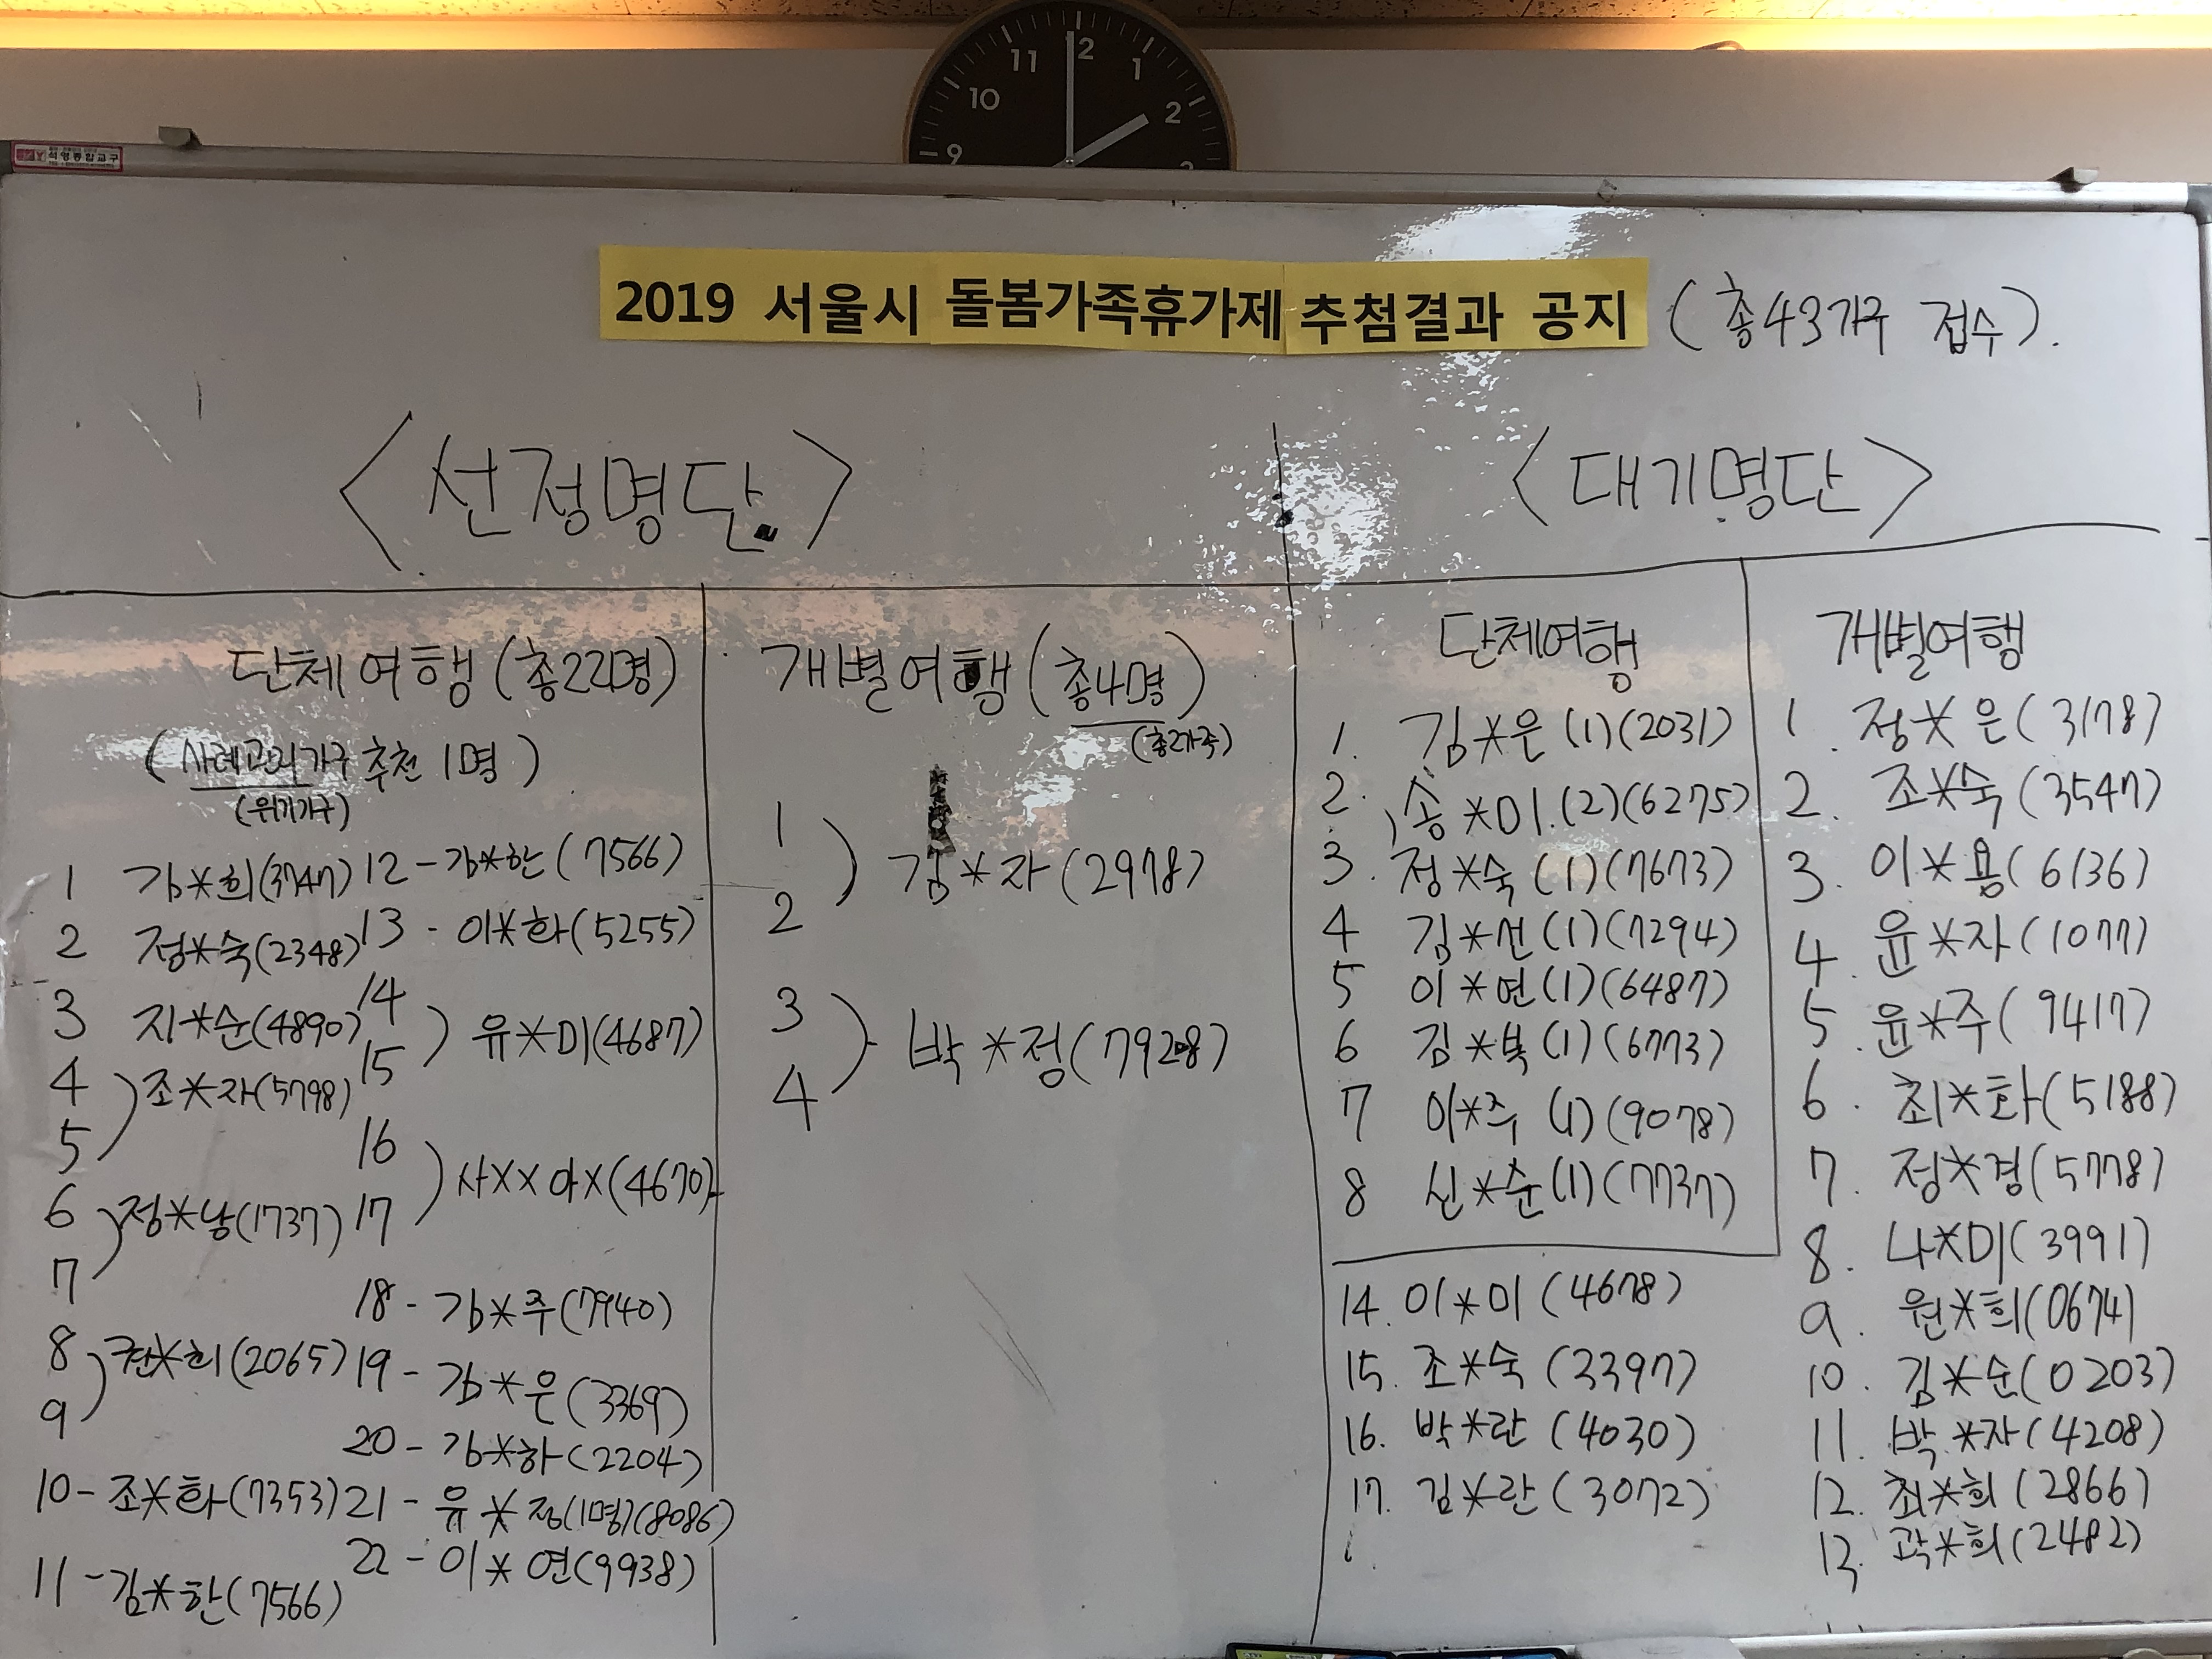 11 2 1
10 2
9 3
석영종합교구
2019 서울시 돌봄가족휴가제 추첨결과 공지 (총43가구 접수).
<선정명단>
단체여행 (총22명)
(사례관리가구 추천 1명)
(위기가구)
1 김*희(3747)
2 정*숙(2348)
3 지*순(4890)
4
5 ) 조*자(5798)
6
7 ) 정*남(1737)
8
9 ) 권*희(2065)
10- 조*화(7353)
11- 김*한(7566)
12- 김*한(7566)
13- 이*화(5255)
14
15 ) 유*미(4687)
16
17 ) 사** 아*(4670)
18- 김*주(7940)
19- 김*은(3369)
20- 김*하(2204)
21- 유*정(1명)(8086)
22- 이*연(9938)
개별여행 (총4명)
(총2가족)
1
2 ) 김*자(2978)
3
4 ) 박*정(7928)
<대기명단>
단체여행
1. 김*은(1)(2031)
2. 송*미.(2)(6275)
3. 정*숙(1)(7673)
4 김*선(1)(7294)
5 이*연(1)(6487)
6 김*복(1)(6773)
7 이*주(1)(9078)
8 신*순(1)(7737)
개별여행
1. 정*은(3178)
2. 조*숙(3547)
3. 이*용(6136)
4. 윤*자(1077)
5. 윤*주(9417)
6. 최*화(5188)
7. 정*경(5778)
8. 나*미(3991)
9. 원*희(0674)
10. 김*순(0203)
11. 박*자(4208)
12. 최*희(2866)
13. 곽*희(2482)
14. 이*미(4678)
15. 조*숙(3397)
16. 박*란(4030)
17. 김*란(3072)